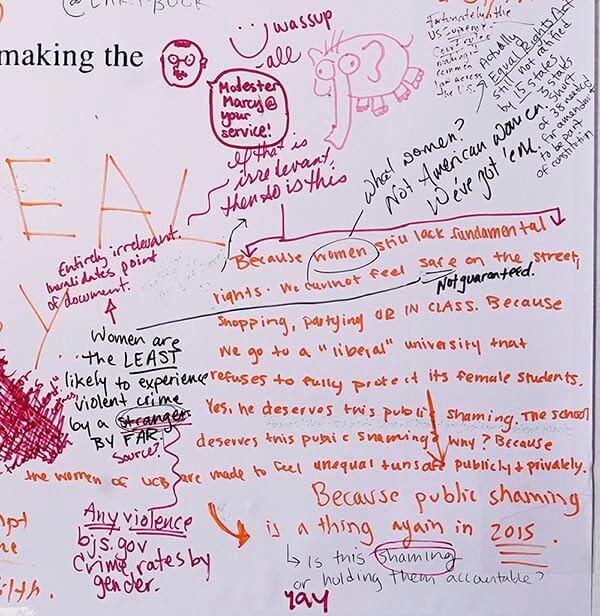 @CART BUCK
making the
wassup
all
Modester
Marcy@
your
service!
If that is
irrelevant,
then so is this
Fortunately the
US Supreme
Court
making it
common
across
the U.S.
Actually
Equal Rights Act
still not ratified
by 15 states
3 states
short
of 38 needed
for amendment
to be part
of constitution
What women?
Not American women
We've got 'em.
EAL
Entirely irrelevant.
Invalidates point
of document.
Because women still lack fundamental
rights. We cannot feel safe on the street,
Not guaranteed.
shopping, partying OR IN CLASS. Because
we go to a "liberal" university that
refuses to fully protect its female students.
Yes, he deserves this public shaming. The school
deserves this public shaming. Why? Because
the women of UCB are made to feel unequal + unsafe publicly + privately.
Women are
the LEAST
likely to experience
violent crime
by a stranger
BY FAR.
source?
Any violence
bjs.gov
Crime rates by
gender.
Because public shaming
is a thing again in 2015.
↳ Is this shaming
or holding them accountable?
yay